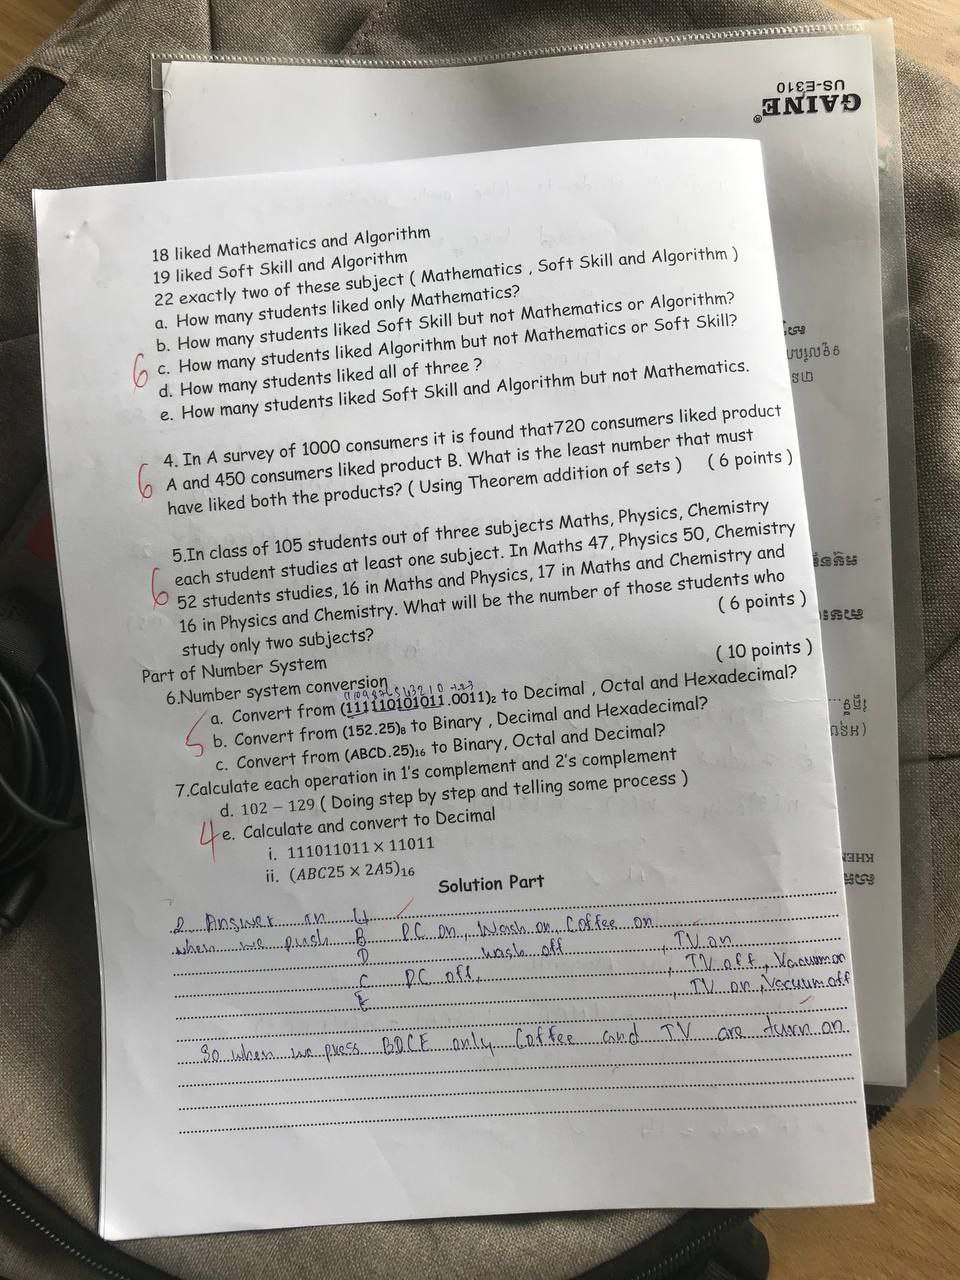 GAINE®
US-E310
18 liked Mathematics and Algorithm
19 liked Soft Skill and Algorithm
22 exactly two of these subject ( Mathematics , Soft Skill and Algorithm )
a. How many students liked only Mathematics?
b. How many students liked Soft Skill but not Mathematics or Algorithm?
6 c. How many students liked Algorithm but not Mathematics or Soft Skill?
d. How many students liked all of three ?
e. How many students liked Soft Skill and Algorithm but not Mathematics.
4. In A survey of 1000 consumers it is found that720 consumers liked product
6 A and 450 consumers liked product B. What is the least number that must
have liked both the products? ( Using Theorem addition of sets ) ( 6 points )
5.In class of 105 students out of three subjects Maths, Physics, Chemistry
each student studies at least one subject. In Maths 47, Physics 50, Chemistry
6 52 students studies, 16 in Maths and Physics, 17 in Maths and Chemistry and
16 in Physics and Chemistry. What will be the number of those students who
study only two subjects? ( 6 points )
Part of Number System
6.Number system conversion ( 10 points )
a. Convert from (111110101011.0011)₂ to Decimal , Octal and Hexadecimal?
5 b. Convert from (152.25)₈ to Binary , Decimal and Hexadecimal?
c. Convert from (ABCD.25)₁₆ to Binary, Octal and Decimal?
7.Calculate each operation in 1's complement and 2's complement
d. 102 – 129 ( Doing step by step and telling some process )
4 e. Calculate and convert to Decimal
i. 111011011 × 11011
ii. (ABC25 × 2A5)₁₆
Solution Part
2 Answer in 4
when we push B PC on, Wash on, Coffee on
D wash off , TV on
C PC off, , TV off, Vacuum on
E , TV on, Vacuum off
So when we press BDCE only Coffee and TV are turn on